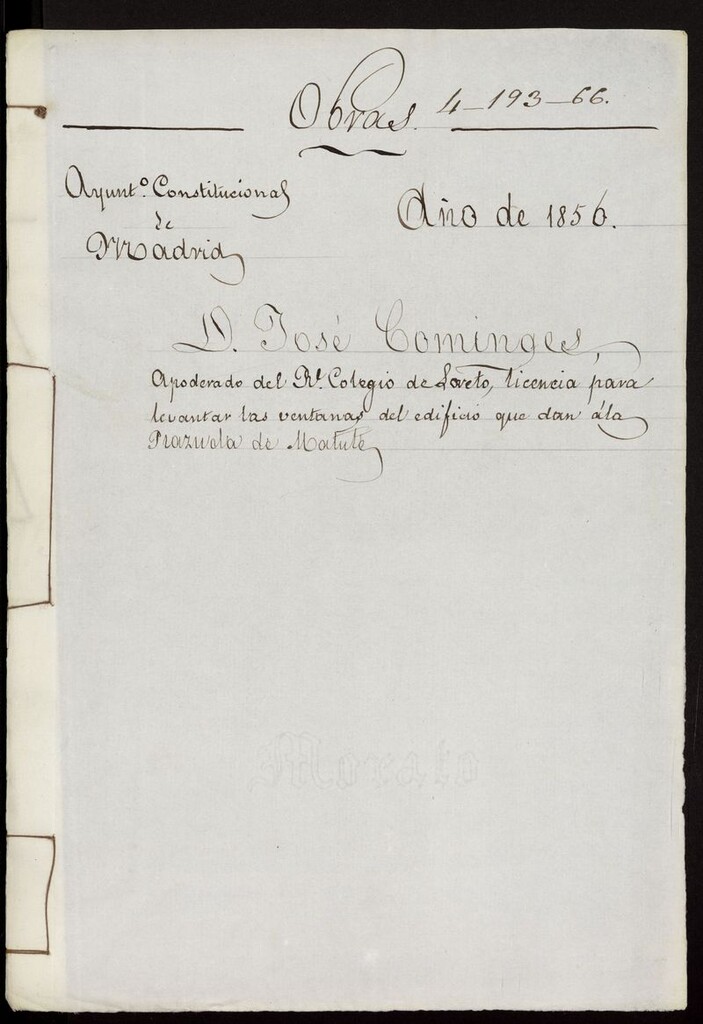 Obras. 4-193-66.
Ayunt.º Constitucional
de
Madrid
Año de 1856.
D. José Cominges,
Apoderado del Rl. Colegio de Loreto, licencia para
levantar las ventanas del edificio que dan ála
Plazuela de Matute
Morato